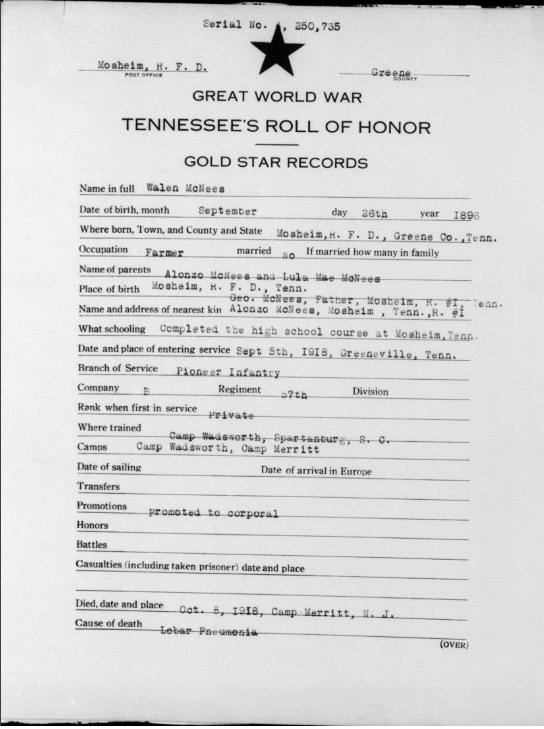 Serial No. 4, 250,735
Mosheim, R. F. D.
POST OFFICE
Greene
COUNTY
GREAT WORLD WAR
TENNESSEE'S ROLL OF HONOR
GOLD STAR RECORDS
Name in full Walen McNees
Date of birth, month September day 26th year 1896
Where born, Town, and County and State Mosheim, R. F. D., Greene Co., Tenn.
Occupation Farmer married No If married how many in family
Name of parents Alonzo McNees and Lula Mae McNees
Place of birth Mosheim, R. F. D., Tenn.
Geo. McNees, Father, Mosheim, R. #1, Tenn.
Name and address of nearest kin Alonzo McNees, Mosheim , Tenn.,R. #1
What schooling Completed the high school course at Mosheim,Tenn.
Date and place of entering service Sept 5th, 1918, Greeneville, Tenn.
Branch of Service Pioneer Infantry
Company B Regiment 57th Division
Rank when first in service Private
Where trained Camp Wadsworth, Spartanburg, S. C.
Camps Camp Wadsworth, Camp Merritt
Date of sailing Date of arrival in Europe
Transfers
Promotions promoted to corporal
Honors
Battles
Casualties (including taken prisoner) date and place
Died, date and place Oct. 8, 1918, Camp Merritt, N. J.
Cause of death Lobar Pneumonia
(OVER)